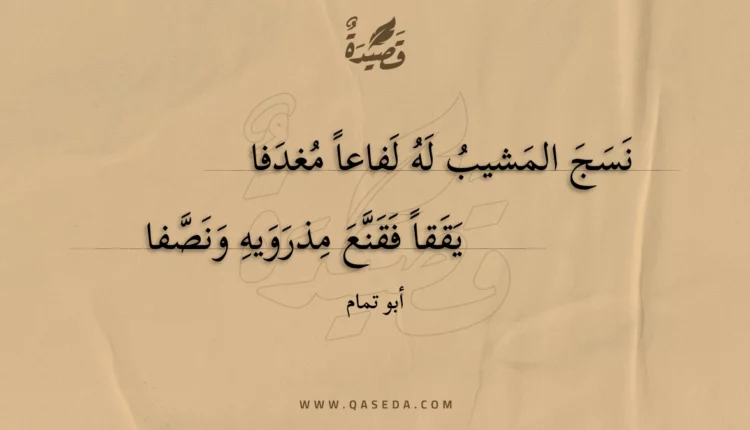 قَصِيْدَةٌ
نَسَجَ المَشيبُ لَهُ لَفاعاً مُغدَفا
يَقَقاً فَقَنَّعَ مِذرَوَيهِ وَنَصَّفا
أبو تمام
WWW.QASEDA.COM